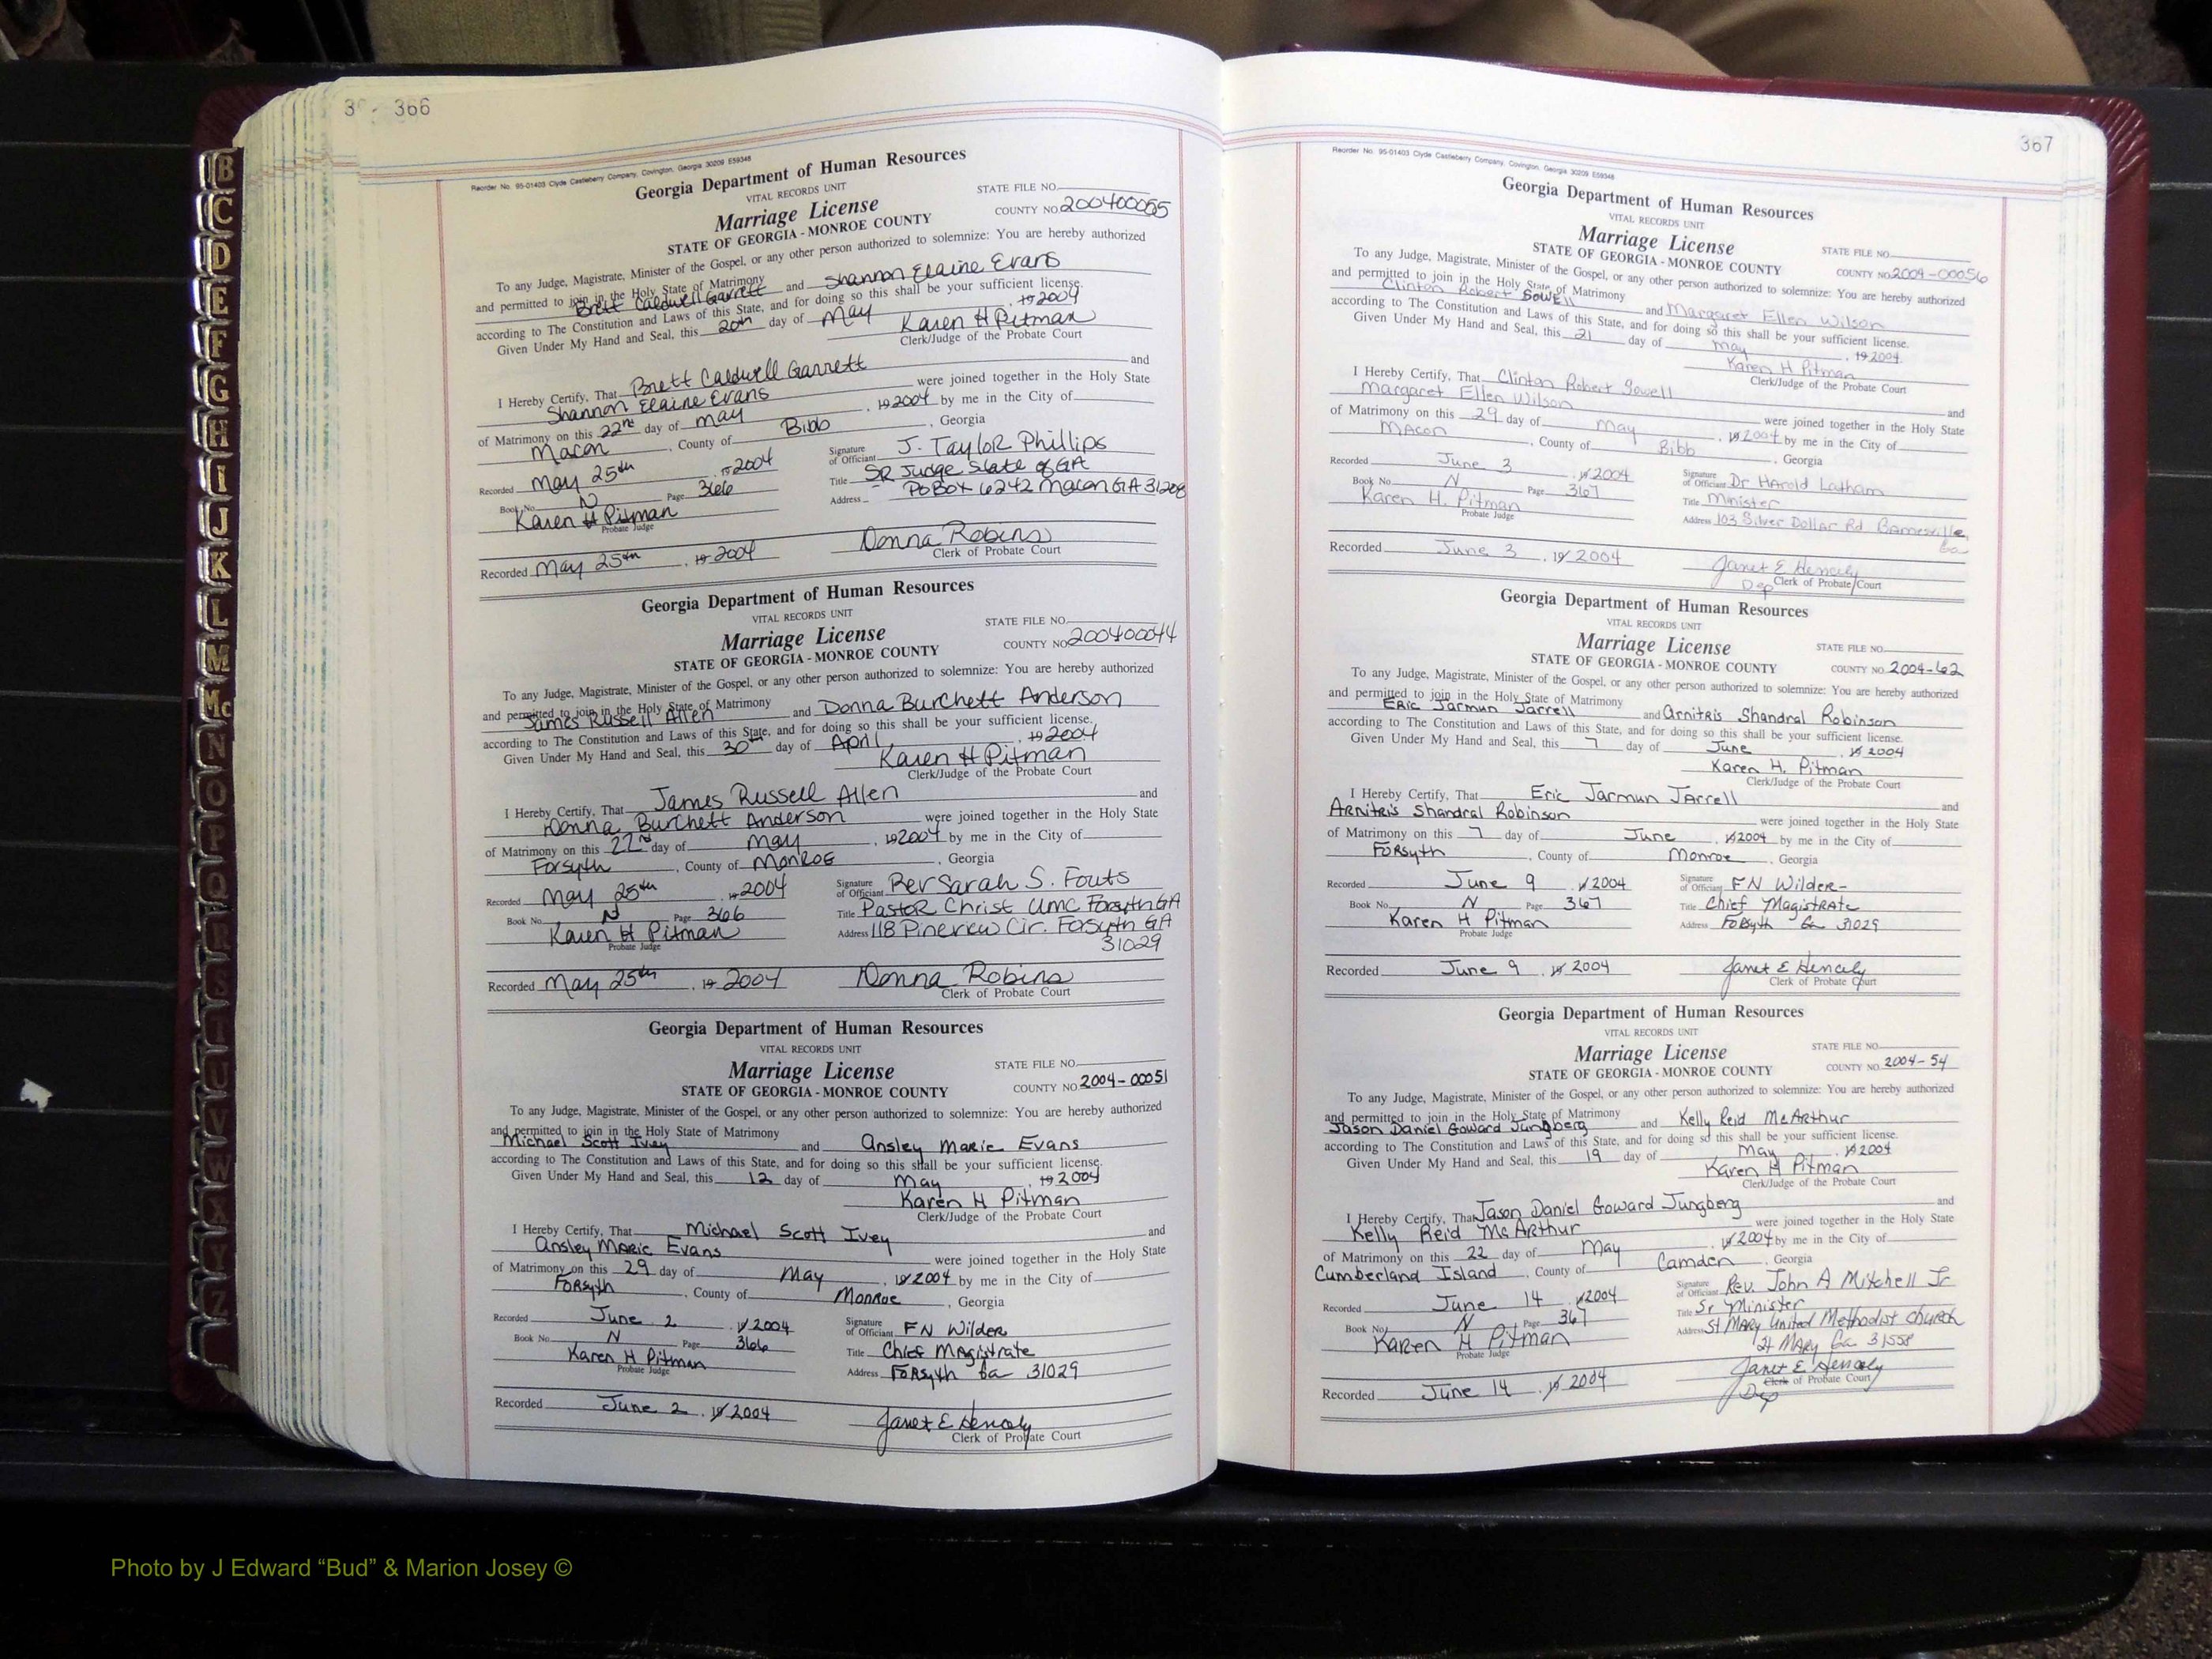 366
Reorder No. 95-01403 Clyde Castleberry Company, Covington, Georgia 30209 E59346
Georgia Department of Human Resources
VITAL RECORDS UNIT
Marriage License
STATE OF GEORGIA - MONROE COUNTY
STATE FILE NO.
COUNTY NO. 200400055
To any Judge, Magistrate, Minister of the Gospel, or any other person authorized to solemnize: You are hereby authorized
and permitted to join in the Holy State of Matrimony
Brett Caldwell Garrett and Shannon Elaine Evans
according to The Constitution and Laws of this State, and for doing so this shall be your sufficient license.
Given Under My Hand and Seal, this 20th day of May, 19 2004
Karen H Pitman
Clerk/Judge of the Probate Court
I Hereby Certify, That Brett Caldwell Garrett and
Shannon Elaine Evans were joined together in the Holy State
of Matrimony on this 22nd day of May, 19 2004 by me in the City of
Macon, County of Bibb, Georgia
Recorded May 25th, 19 2004
Book No. N Page 366
Karen H Pitman
Probate Judge
Signature of Officiant J. Taylor Phillips
Title SR Judge State of GA
Address PO Box 6242 Macon GA 31208
Recorded May 25th, 19 2004
Donna Robins
Clerk of Probate Court
Georgia Department of Human Resources
VITAL RECORDS UNIT
Marriage License
STATE OF GEORGIA - MONROE COUNTY
STATE FILE NO.
COUNTY NO. 200400044
To any Judge, Magistrate, Minister of the Gospel, or any other person authorized to solemnize: You are hereby authorized
and permitted to join in the Holy State of Matrimony
James Russell Allen and Donna Burchett Anderson
according to The Constitution and Laws of this State, and for doing so this shall be your sufficient license.
Given Under My Hand and Seal, this 30th day of April, 19 2004
Karen H Pitman
Clerk/Judge of the Probate Court
I Hereby Certify, That James Russell Allen and
Donna Burchett Anderson were joined together in the Holy State
of Matrimony on this 22nd day of May, 19 2004 by me in the City of
Forsyth, County of Monroe, Georgia
Recorded May 25th, 19 2004
Book No. N Page 366
Karen H Pitman
Probate Judge
Signature of Officiant Rev Sarah S. Fouts
Title Pastor Christ UMC Forsyth GA
Address 118 Pineview Cir. Forsyth GA
31029
Recorded May 25th, 19 2004
Donna Robins
Clerk of Probate Court
Georgia Department of Human Resources
VITAL RECORDS UNIT
Marriage License
STATE OF GEORGIA - MONROE COUNTY
STATE FILE NO.
COUNTY NO. 2004-00051
To any Judge, Magistrate, Minister of the Gospel, or any other person authorized to solemnize: You are hereby authorized
and permitted to join in the Holy State of Matrimony
Michael Scott Ivey and Ansley Marie Evans
according to The Constitution and Laws of this State, and for doing so this shall be your sufficient license.
Given Under My Hand and Seal, this 12 day of May, 19 2004
Karen H Pitman
Clerk/Judge of the Probate Court
I Hereby Certify, That Michael Scott Ivey and
Ansley Marie Evans were joined together in the Holy State
of Matrimony on this 29 day of May, 19 2004 by me in the City of
Forsyth, County of Monroe, Georgia
Recorded June 2, 19 2004
Book No. N Page 366
Karen H Pitman
Probate Judge
Signature of Officiant FN Wilder
Title Chief Magistrate
Address Forsyth Ga 31029
Recorded June 2, 19 2004
Janet E Hencely
Clerk of Probate Court
367
Reorder No. 95-01403 Clyde Castleberry Company, Covington, Georgia 30209 E59346
Georgia Department of Human Resources
VITAL RECORDS UNIT
Marriage License
STATE OF GEORGIA - MONROE COUNTY
STATE FILE NO.
COUNTY NO. 2004-00056
To any Judge, Magistrate, Minister of the Gospel, or any other person authorized to solemnize: You are hereby authorized
and permitted to join in the Holy State of Matrimony
Clinton Robert Sowell and Margaret Ellen Wilson
according to The Constitution and Laws of this State, and for doing so this shall be your sufficient license.
Given Under My Hand and Seal, this 21 day of May, 19 2004
Karen H Pitman
Clerk/Judge of the Probate Court
I Hereby Certify, That Clinton Robert Sowell and
Margaret Ellen Wilson were joined together in the Holy State
of Matrimony on this 29 day of May, 19 2004 by me in the City of
Macon, County of Bibb, Georgia
Recorded June 3, 19 2004
Book No. N Page 367
Karen H. Pitman
Probate Judge
Signature of Officiant Dr Harold Latham
Title Minister
Address 103 Silver Dollar Rd Barnesville
Ga
Recorded June 3, 19 2004
Janet E Hencely
Dep Clerk of Probate Court
Georgia Department of Human Resources
VITAL RECORDS UNIT
Marriage License
STATE OF GEORGIA - MONROE COUNTY
STATE FILE NO.
COUNTY NO. 2004-62
To any Judge, Magistrate, Minister of the Gospel, or any other person authorized to solemnize: You are hereby authorized
and permitted to join in the Holy State of Matrimony
Eric Jarmun Jarrell and Arnitris Shandral Robinson
according to The Constitution and Laws of this State, and for doing so this shall be your sufficient license.
Given Under My Hand and Seal, this 7 day of June, 19 2004
Karen H. Pitman
Clerk/Judge of the Probate Court
I Hereby Certify, That Eric Jarmun Jarrell and
Arnitris Shandral Robinson were joined together in the Holy State
of Matrimony on this 7 day of June, 19 2004 by me in the City of
Forsyth, County of Monroe, Georgia
Recorded June 9, 19 2004
Book No. N Page 367
Karen H Pitman
Probate Judge
Signature of Officiant FN Wilder
Title Chief Magistrate
Address Forsyth Ga 31029
Recorded June 9, 19 2004
Janet E Hencely
Clerk of Probate Court
Georgia Department of Human Resources
VITAL RECORDS UNIT
Marriage License
STATE OF GEORGIA - MONROE COUNTY
STATE FILE NO.
COUNTY NO. 2004-54
To any Judge, Magistrate, Minister of the Gospel, or any other person authorized to solemnize: You are hereby authorized
and permitted to join in the Holy State of Matrimony
Jason Daniel Goward Jungberg and Kelly Reid McArthur
according to The Constitution and Laws of this State, and for doing so this shall be your sufficient license.
Given Under My Hand and Seal, this 19 day of May, 19 2004
Karen H Pitman
Clerk/Judge of the Probate Court
I Hereby Certify, That Jason Daniel Goward Jungberg and
Kelly Reid McArthur were joined together in the Holy State
of Matrimony on this 22 day of May, 19 2004 by me in the City of
Cumberland Island, County of Camden, Georgia
Recorded June 14, 19 2004
Book No. N Page 367
Karen H Pitman
Probate Judge
Signature of Officiant Rev. John A Mitchell Jr
Title Sr Minister
Address St Mary United Methodist Church
St Mary Ga 31558
Recorded June 14, 19 2004
Janet E Hencely
Clerk of Probate Court
Dep
B
C
D
E
F
G
H
I
J
K
L
M
Mc
N
O
P
Q
R
S
T
U
V
W
X
Y
Z
Photo by J Edward “Bud” & Marion Josey ©